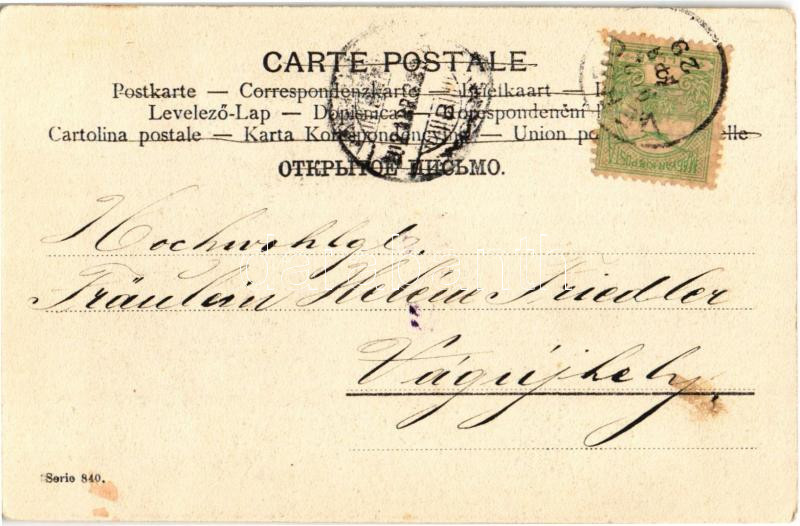 CARTE POSTALE
Postkarte — Correspondenzkarte — Briefkaart —
Levelező-Lap — Dopisnica — Korespondenční
Cartolina postale — Karta Korespondencyjna — Union
ОТКРЫТОЕ ПИСЬМО.
Hochwohlgeb.
Fräulein Helene Friedler
Vágújhely.
Serie 840.